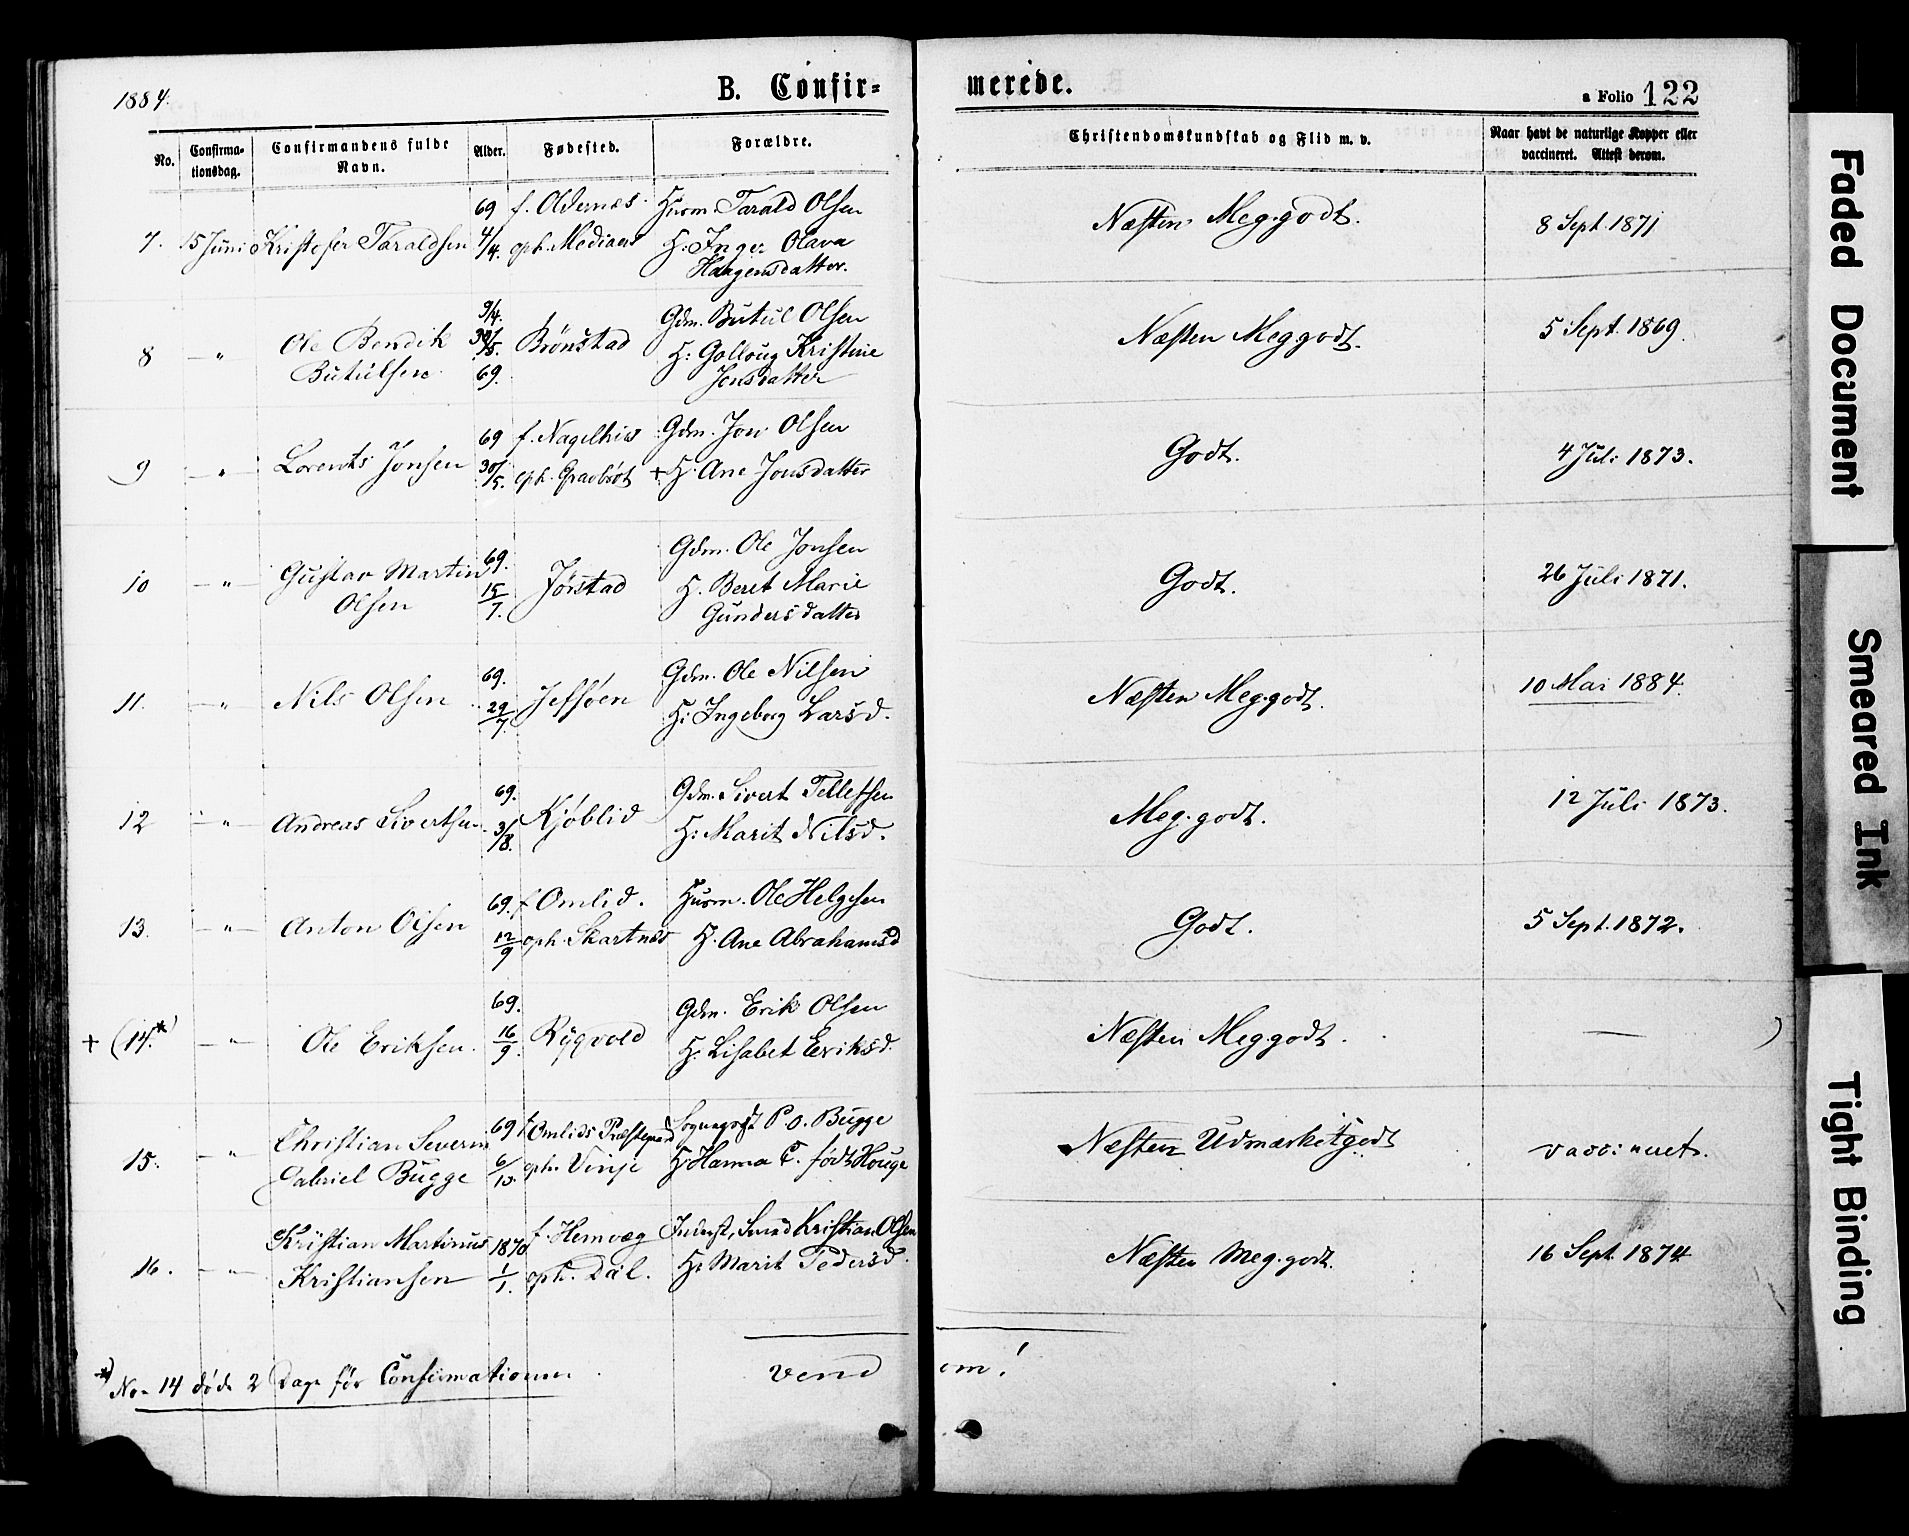 1884.
B. Confir-
merede.
a Folio 122
No.
Confirma-
tionsdag.
Confirmandens fulde
Navn.
Alder.
Fødested.
Forældre.
Christendomskundskab og Flid m. v.
Naar havt de naturlige Kopper eller
vaccineret. Attest derom.
69 f. Oldernæs. Husm. Tarald Olsen
7. 15 Juni Kristofer Taraldsen 4/4. oph. Mediaas H: Inger Olava
Haagensdatter.
Næsten Meg. godt.
8 Sept. 1871
9/4. Gdm. Butul Olsen
8 — " Ole Bendik 30/5. Brønstad H: Golloug Kristine
Butulsen 69. Jonsdatter
Næsten Meg godt.
5 Sept. 1869.
69 f. Nagelhus Gdm. Jon Olsen
9 — " Lorents Jonsen 30/5. oph. Gravbrøt + H. Ane Jonsdatter
Godt.
4 Juli 1873.
69. Gdm. Ole Jonsen
10 — " — Gustav Martin 15/7. Jørstad H. Beret Marie
Olsen Gundersdatter
Godt.
26 Juli 1871.
69. Gdm. Ole Nilsen
11. — " Nils Olsen 29/7. H: Ingeborg Larsd.
Næsten Meg. godt.
10 Mai 1884.
69. Gdm. Sivert Tellefsen
12 — " — Andreas Sivertsen 3/8. Kjøblid H: Marit Nilsd.
Meg. godt.
12 Juli 1873.
69. f Omlid. Husm. Ole Helgesen
13. — " — Anton Olsen 12/9 oph. Skartnes H. Ane Abrahamsd
Godt.
5 Sept. 1872.
69. Gdm. Erik Olsen
+ (14.*) — " — Ole Eriksen. 16/9. Rygvold H: Lisabet Eriksd.
Næsten Meg godt.
— )
Christian Severin 69 f Omlids Præstegaard Sogneprest P. O. Bugge
15. — " Gabriel Bugge 6/10. oph. Vinje H: Hanna C. født Houge
Næsten Udmærket godt
vaccineret.
Kristian Martinus 1870 f. Hemvæg Inderst, Smed Kristian Olsen
16. — " — Kristiansen 1/1. oph. Dal. H: Marit Pedersd.
Næsten Meg. godt.
16 Sept. 1874
*) No. 14 døde 2 Dage før Confirmationen.
vend
om!
Faded Document
Smeared Ink
Tight Binding